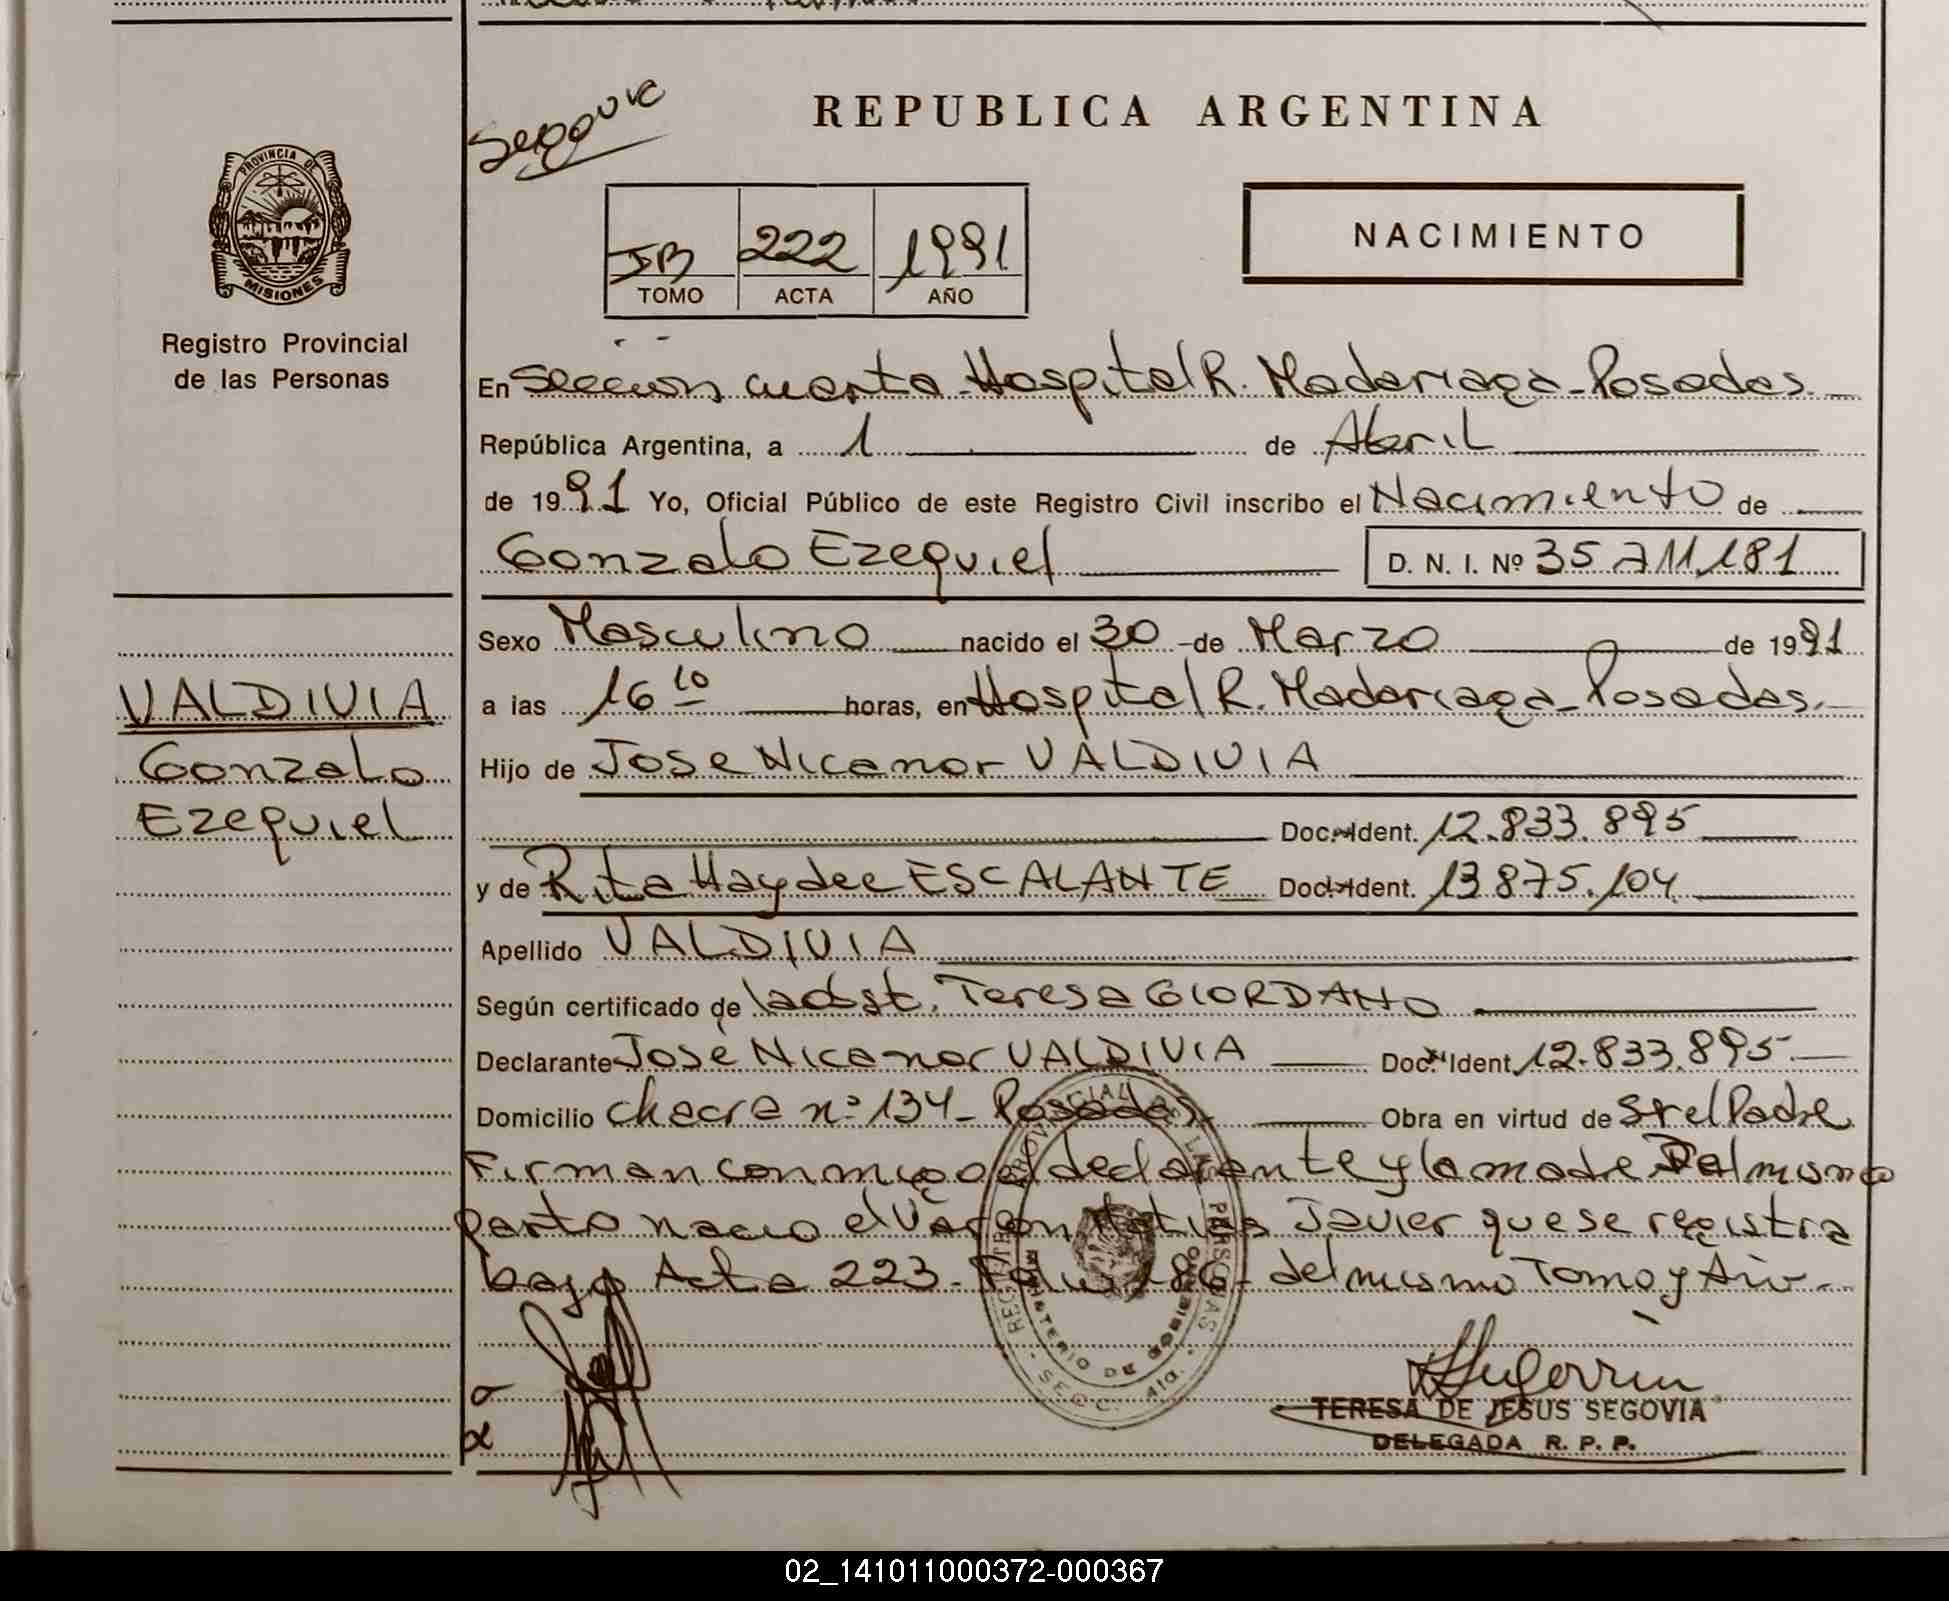 Segovia
REPUBLICA ARGENTINA
PROVINCIA DE MISIONES
Registro Provincial
de las Personas
222 1991
TOMO ACTA AÑO
NACIMIENTO
En Seccion cuarta Hospital R. Madariaga - Posadas.
República Argentina, a 1 de Abril
de 1991 Yo, Oficial Público de este Registro Civil inscribo el Nacimiento de
Gonzalo Ezequiel D. N. I. Nº 35.711.181
Sexo Masculino nacido el 30 de Marzo de 1991
a las 16 10 horas, en Hospital R. Madariaga - Posadas.
Hijo de Jose Nicanor VALDIVIA
Doc. Ident. 12.833.895
y de Rita Haydee ESCALANTE Doc. Ident. 13.875.104
Apellido VALDIVIA
Según certificado de la obst. Teresa GIORDANO
Declarante Jose Nicanor VALDIVIA Doc. Ident. 12.833.895
Domicilio Chacra nº 134 - Posadas Obra en virtud de Ser el Padre
Firman conmigo el declarante y la madre. Del mismo
parto nacio el Varon Matias Javier que se registra
bajo Acta 223 - Folio 186 - del mismo Tomo y Año -
VALDIVIA
Gonzalo
Ezequiel
REGISTRO PROVINCIAL DE LAS PERSONAS
MINISTERIO DE GOBIERNO
SECC. 4ta.
TERESA DE JESUS SEGOVIA
DELEGADA R. P. P.
02_141011000372-000367